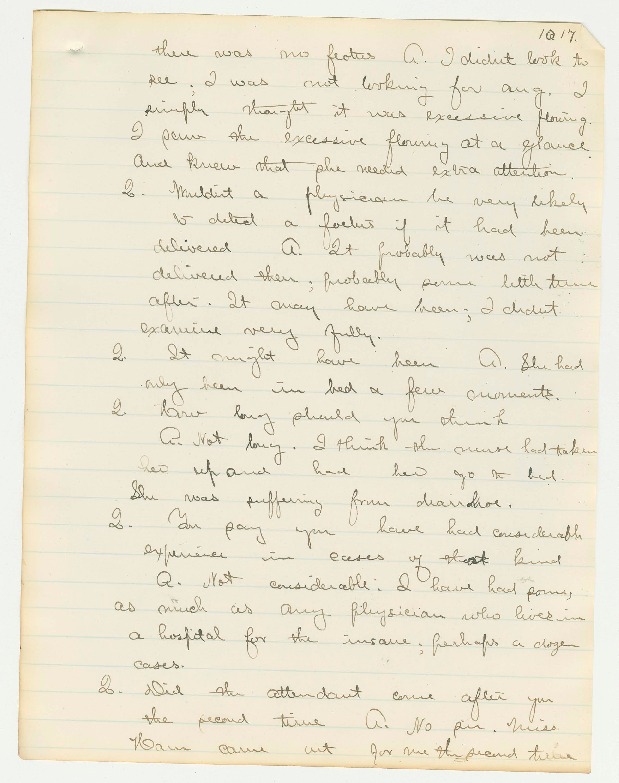 1017.
there was no foetus A. I didnt look to
see; I was not looking for any. I
simply thought it was excessive flowing.
I saw the excessive flowing at a glance
and knew that she needed extra attention.
Q. Wouldnt a physician be very likely
to detect a foetus if it had been
delivered A. It probably was not
delivered then; probably some little time
after. It may have been; I didnt
examine very fully.
Q. It might have been A. She had
only been in bed a few moments.
Q. How long should you think
A. Not long. I think the nurse had taken
her up and had her go to bed.
She was suffering from diarrhoe.
Q. You say you have had considerable
experience in cases of that kind
A. Not considerable. I have had some,
as much as any physician who lives in
a hospital for the insane; perhaps a dozen
cases.
Q. Did the attendant come after you
the second time A. No sir. Miss
Ham came out for me the second time